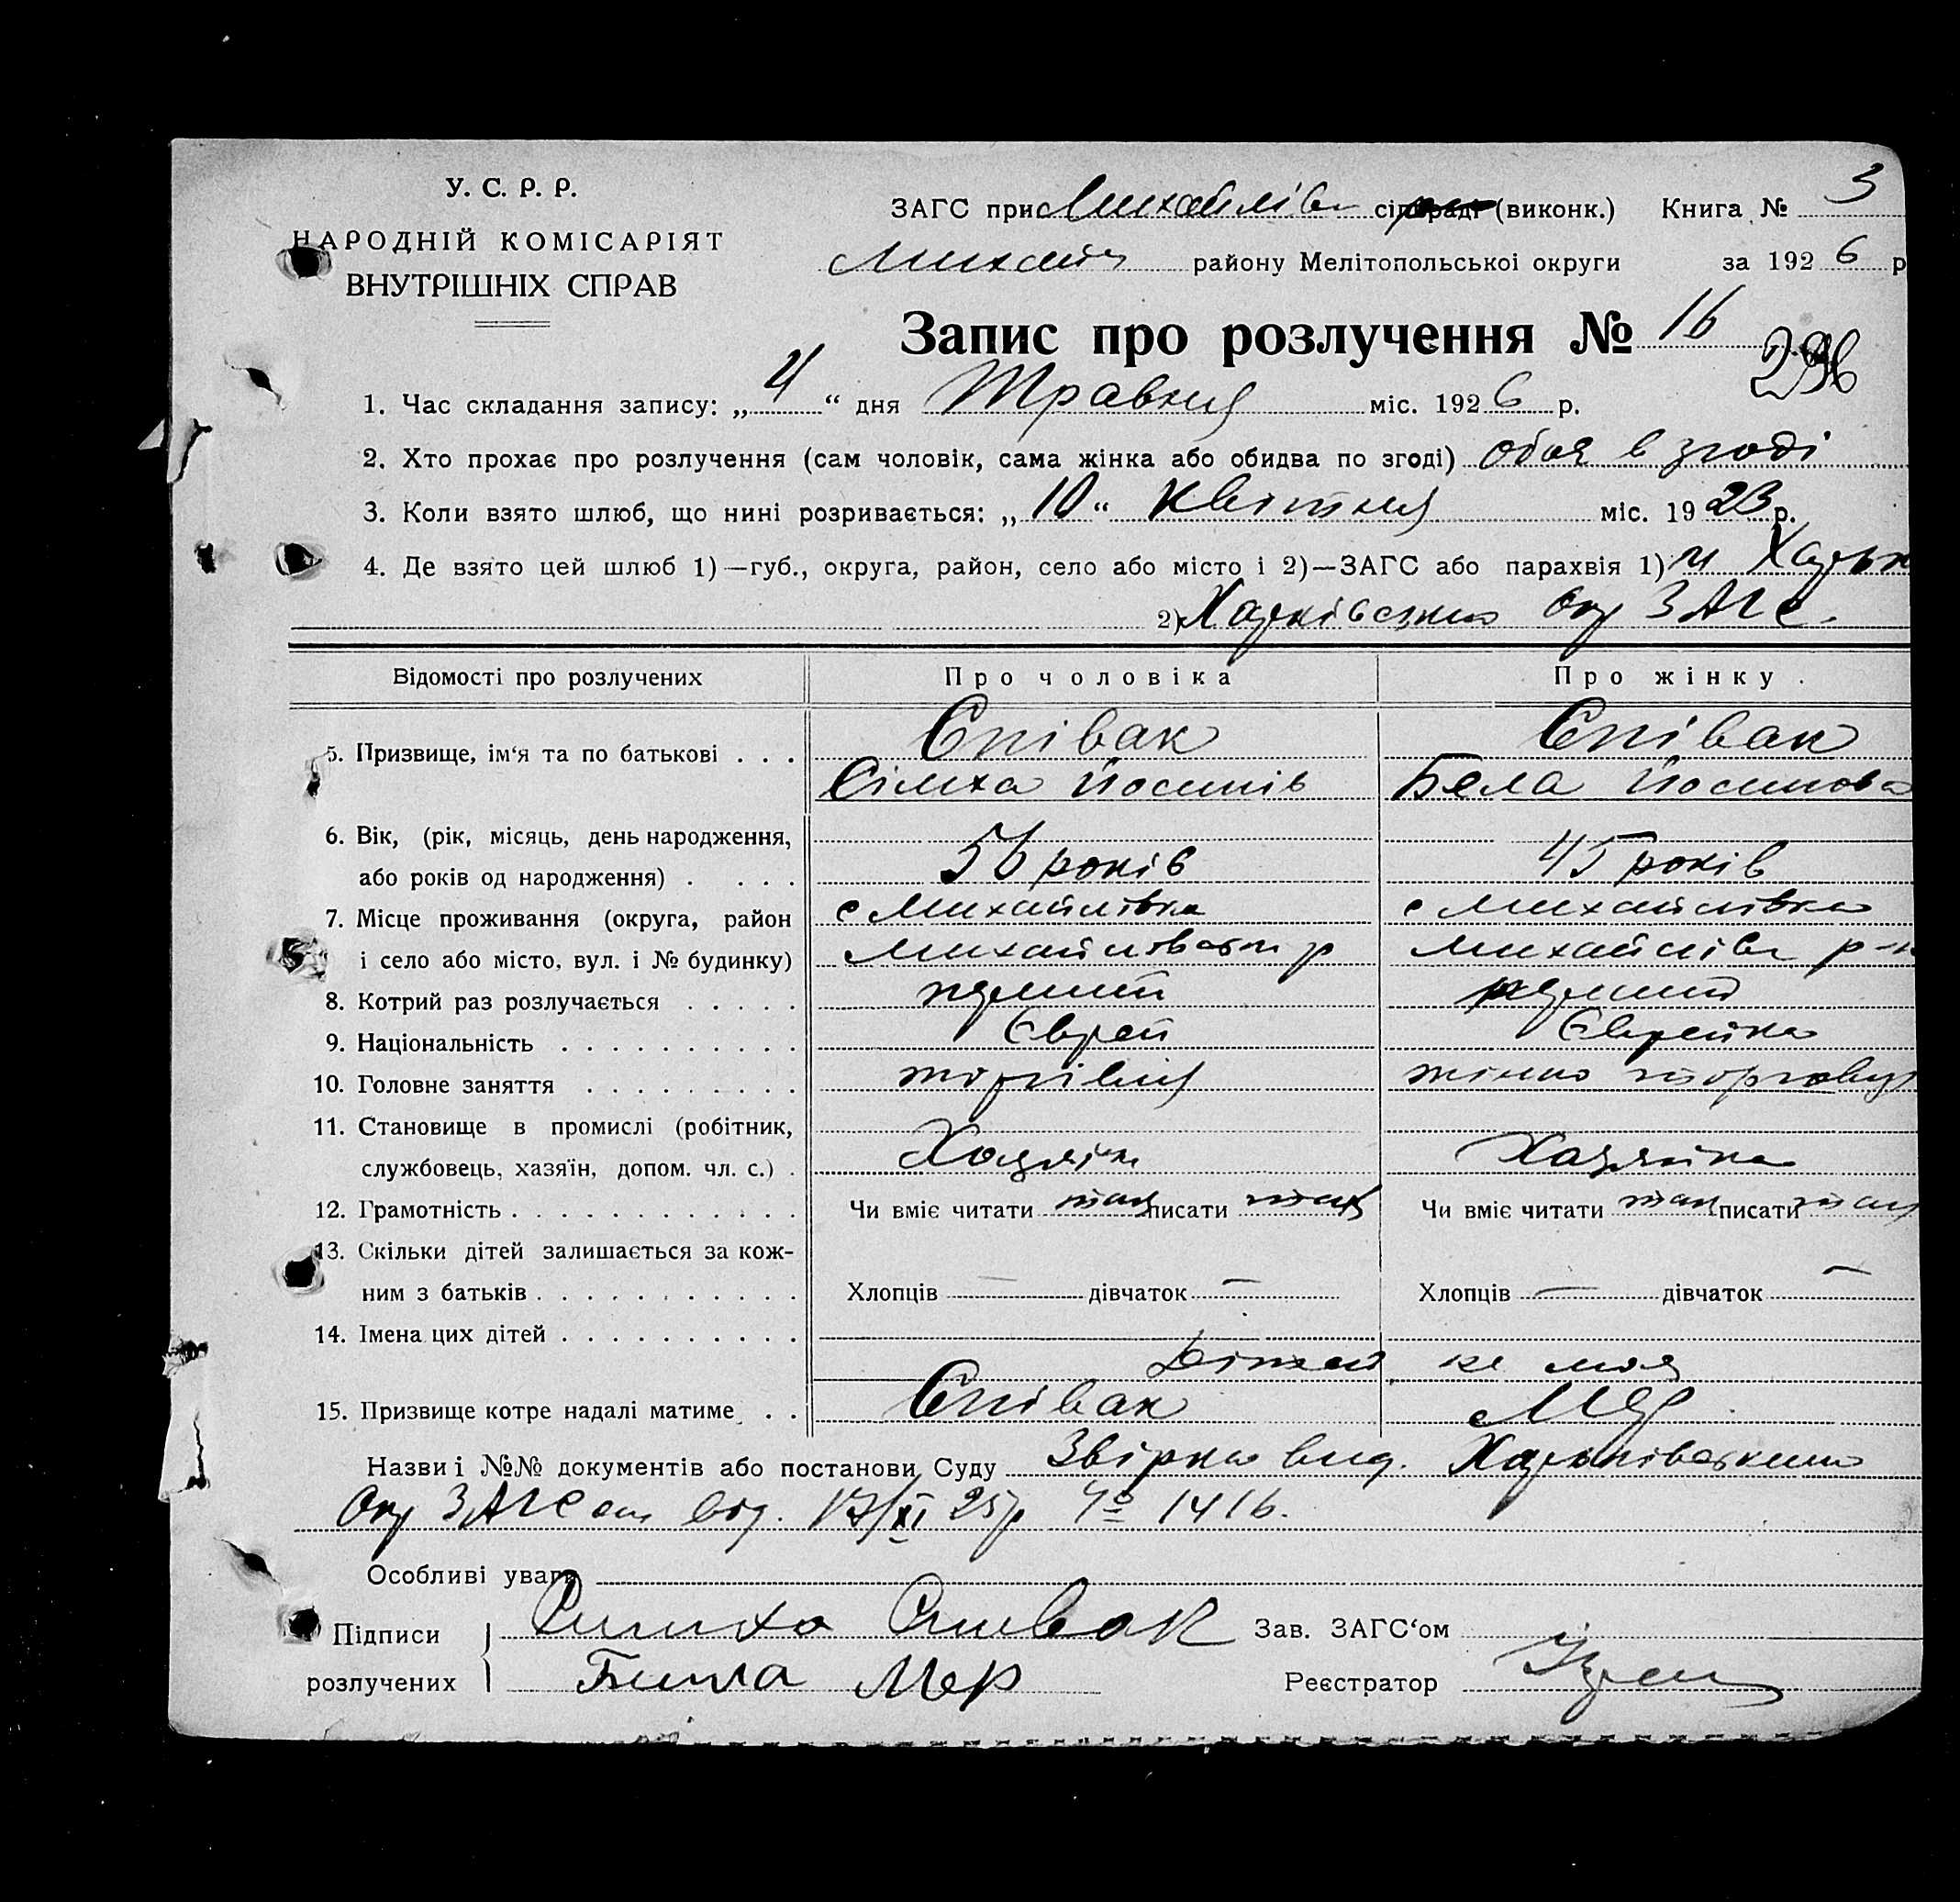 У. С. Р. Р.
НАРОДНІЙ КОМІСАРІЯТ
ВНУТРІШНІХ СПРАВ
ЗАГС при Михайлівс сільраді (виконк.) Книга № 3
Михайл району Мелітопольської округи за 1926 р
Запис про розлучення № 16
296
1. Час складання запису: „4“ дня Травня міс. 1926 р.
2. Хто прохає про розлучення (сам чоловік, сама жінка або обидва по згоді) обоя в згоді
3. Коли взято шлюб, що нині розривається: „10“ Квітня міс. 1923 р.
4. Де взято цей шлюб 1)—губ., округа, район, село або місто і 2)—ЗАГС або парахвія 1) м Харьк
2) Харківським Окр ЗАГС.
Відомості про розлучених Про чоловіка Про жінку.
5. Призвище, ім‘я та по батькові . . . Співак Співак
Сімха Йосипів Бела Йосипова
6. Вік, (рік, місяць, день народження,
або років од народження) . . . . 56 років 45 років
7. Місце проживання (округа, район с Михайлівка с Михайлівка
і село або місто, вул. і № будинку) Михайлівськ р Михайлівс р-н
8. Котрий раз розлучається . . . . . перший перший
9. Національність . . . . . . . . . . Єврей Єврейка
10. Головне заняття . . . . . . . . . торгівля жінка торговця
11. Становище в промислі (робітник,
службовець, хазяїн, допом. чл. с.) . Хазяїн Хазяйка
12. Грамотність . . . . . . . . . . . . . Чи вміє читати так писати так Чи вміє читати так писати так
13. Скільки дітей залишається за кож-
ним з батьків . . . . . . . . . . . . Хлопців — дівчаток — Хлопців — дівчаток —
14. Імена цих дітей . . . . . . . . . .
Дітей не мая
15. Призвище котре надалі матиме . . Співак Мер
Назви і №№ документів або постанови Суду Звірка вид. Харьківським
Окр ЗАГСом від. 17/XI 25р № 1416.
Особливі уваги
Підписи Симха Спивак Зав. ЗАГС‘ом
розлучених Бейла Мер Реєстратор